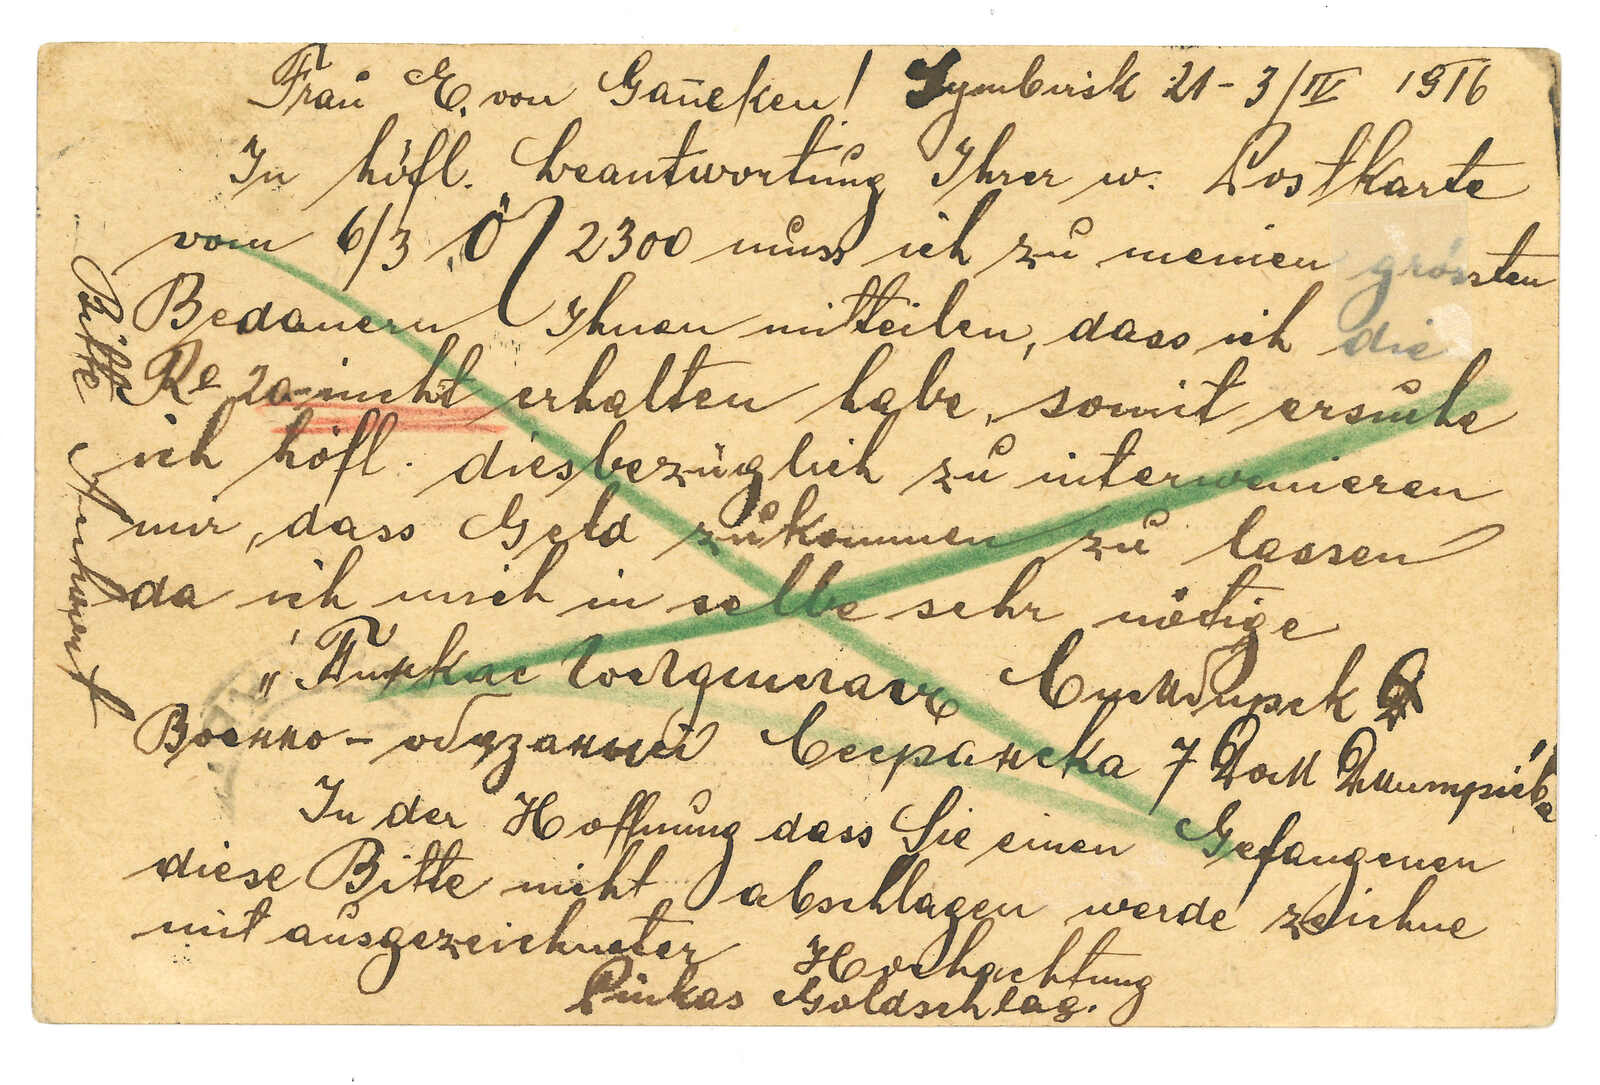 Frau E. von Gan̄eken! Symbirsk 21-3/IV 1916
In höfl. beantwortung Ihrer w. Postkarte
vom 6/3 Ö 2300 muss ich zu meinen grössten
Bedauern Ihnen mitteilen, dass ich die
Re 20 - nicht erhalten habe, somit ersuche
ich höfl. diesbezüglich zu interwenieren
mir, dass Geld zukommen zu lassen
da ich mich in selbe sehr nötige
Пинкас Гольдшлагъ Симбирск
Военно-обязаный Сызранска 7 Дом Дмитріева
In der Hoffnung dass Sie einen Gefangenen
diese Bitte nicht abschlagen werde zeichne
mit ausgezeichneter Hochachtung
Pinkas Goldschlag.
Bitte Antwort